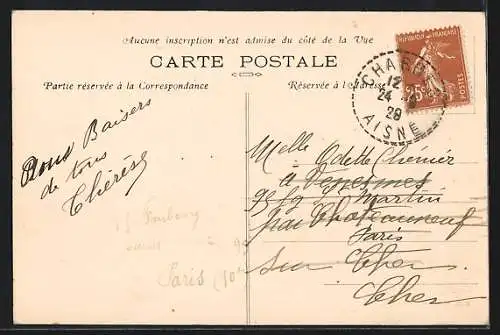 Aucune inscription n'est admise du côté de la Vue
CARTE POSTALE
Partie réservée à la Correspondance
Réservée à l'adresse
REPUBLIQUE FRANÇAISE
25c
POSTES
CHA
12
24
28
AISNE
Bons Baisers
de tous
Thérèse
Melle Odette Chénier
à Venesmes
95 St Martin
par Châteauneuf
Paris
sur Cher
Cher
Faubourg
Paris (10e